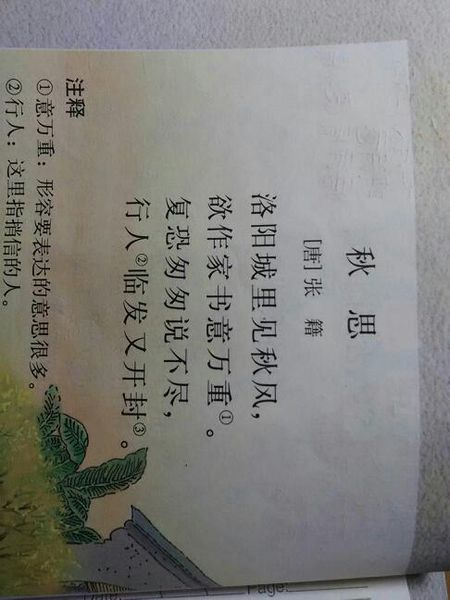 秋思
[唐]张籍
洛阳城里见秋风,
欲作家书意万重①。
复恐匆匆说不尽,
行人②临发又开封③。
注释
①意万重:形容要表达的意思很多。
②行人:这里指捎信的人。